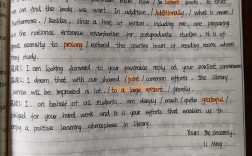 can find the books we want. In addition / Additionally / what's more /
Furthermore / Besides, since a host of students are preparing
for the national entrance examination for postgraduate studies, it is of
great necessity to prolong / extend the opening hours of reading rooms where
they study.
I am looking forward to your favorable reply at your earliest convenience
I deem that with our shared / joint / common efforts, the library
service will be improved a lot / to a large extent / greatly.
I, on behalf of all students, am deeply / much / quite grateful /
obliged for your hard work and it is your efforts that enable us to
enjoy a positive learning atmosphere in library.
Yours Sincerely,
Li Ming